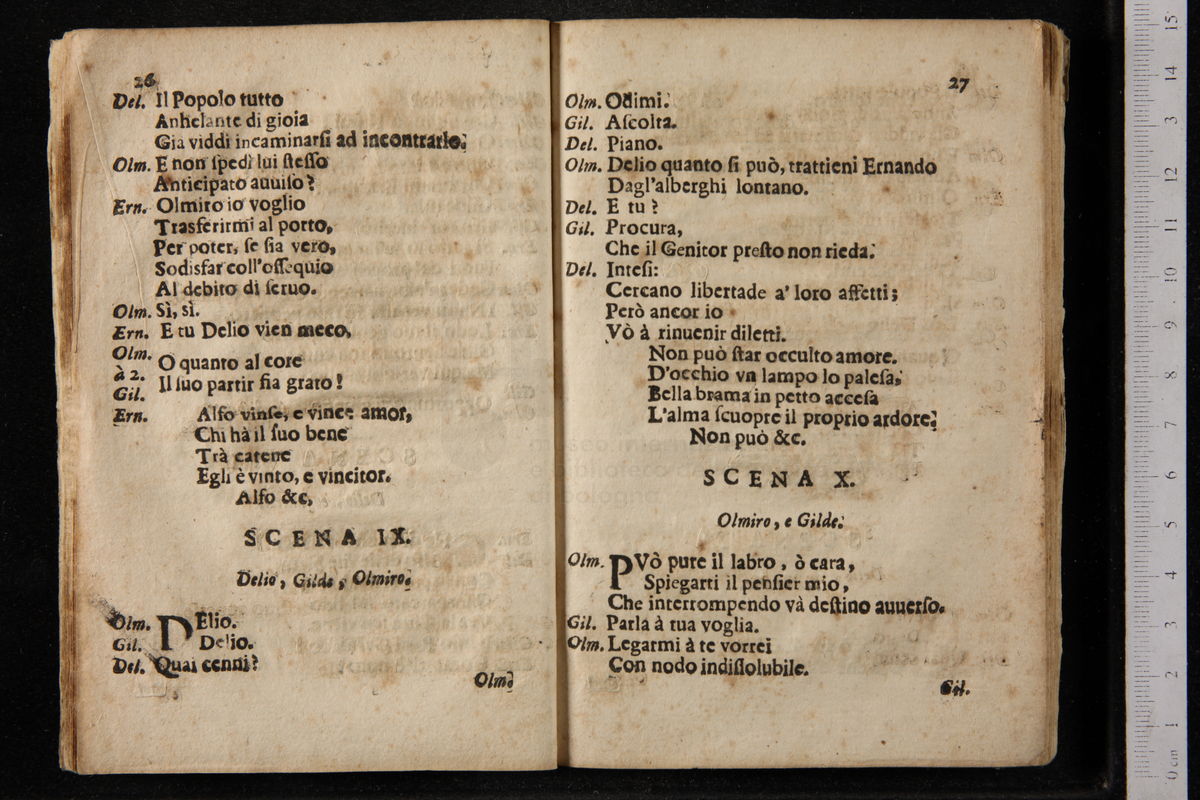 26
Del. Il Popolo tutto
Anhelante di gioia
Già viddi incaminarſi ad incontrarlo.
Olm. E non ſpedì lui ſteſſo
Anticipato auuiſo?
Ern. Olmiro io voglio
Trasferirmi al porto,
Per poter, ſe ſia vero,
Sodisfar coll'oſſequio
Al debito di ſeruo.
Olm. Sì, sì.
Ern. E tu Delio vien meco,
Olm.
à 2. O quanto al core
Gil. Il ſuo partir ſia grato!
Ern. Alfo vinſe, e vince amor,
Chi hà il ſuo bene
Trà catene
Egli è vinto, e vincitor.
Alfo &c,
SCENA IX.
Delio, Gilde, Olmiro.
Olm. DElio.
Gil. Delio.
Del. Quai cenni?
Olm.
27
Olm. Odimi.
Gil. Aſcolta.
Del. Piano.
Olm. Delio quanto ſi può, trattieni Ernando
Dagl'alberghi lontano.
Del. E tu?
Gil. Procura,
Che il Genitor preſto non rieda.
Del. Inteſi:
Cercano libertade a' loro affetti;
Però ancor io
Vò à rinuenir diletti.
Non può ſtar occulto amore.
D'occhio vn lampo lo paleſa,
Bella brama in petto acceſa
L'alma ſcuopre il proprio ardore.
Non può &c.
SCENA X.
Olmiro, e Gilde.
Olm. PVò pure il labro, ò cara,
Spiegarti il penſier mio,
Che interrompendo và deſtino auuerſo.
Gil. Parla à tua voglia.
Olm. Legarmi à te vorrei
Con nodo indiſſolubile.
Gil.
0 cm 1 2 3 4 5 6 7 8 9 10 11 12 13 14 15